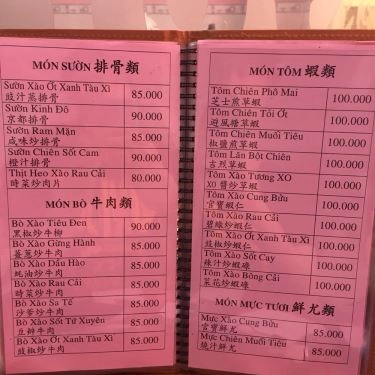 MÓN SƯỜN 排骨類
Sườn Xào Ớt Xanh Tàu Xì 85.000
豉汁蒸排骨
Sườn Kinh Đô 90.000
京都排骨
Sườn Ram Mặn 85.000
咸味炒排骨
Sườn Chiên Sốt Cam 90.000
橙汁排骨
Thịt Heo Xào Rau Cải 85.000
時菜炒肉片
MÓN BÒ 牛肉類
Bò Xào Tiêu Đen 90.000
黑椒炒牛柳
Bò Xào Gừng Hành 85.000
薑蔥炒牛肉
Bò Xào Dầu Hào 85.000
蚝油炒牛肉
Bò Xào Rau Cải 85.000
時菜炒牛肉
Bò Xào Sa Tế 85.000
沙爹炒牛肉
Bò Xào Sốt Tứ Xuyên 85.000
豆瓣牛肉
Bò Xào Ớt Xanh Tàu Xì 85.000
豉椒炒牛肉
MÓN TÔM 蝦類
Tôm Chiên Phô Mai 100.000
芝士煎草蝦
Tôm Chiên Tỏi Ớt 100.000
避風塘草蝦
Tôm Chiên Muối Tiêu 100.000
椒鹽煎草蝦
Tôm Lăn Bột Chiên 100.000
吉烈草蝦
Tôm Xào Tương XO 100.000
XO 醬炒草蝦
Tôm Xào Cung Bửu 100.000
官寶蝦仁
Tôm Xào Rau Cải 100.000
碧綠炒蝦仁
Tôm Xào Ớt Xanh Tàu Xì 100.000
豉椒炒蝦仁
Tôm Xào Sốt Cay 100.000
辣汁炒蝦碌
Tôm Xào Bông Cải 100.000
菜花炒蝦碌
MÓN MỰC TƯƠI 鮮尤類
Mực Xào Cung Bửu 85.000
官寶鮮尤
Mực Chiên Muối Tiêu 85.000
燒汁鮮尤